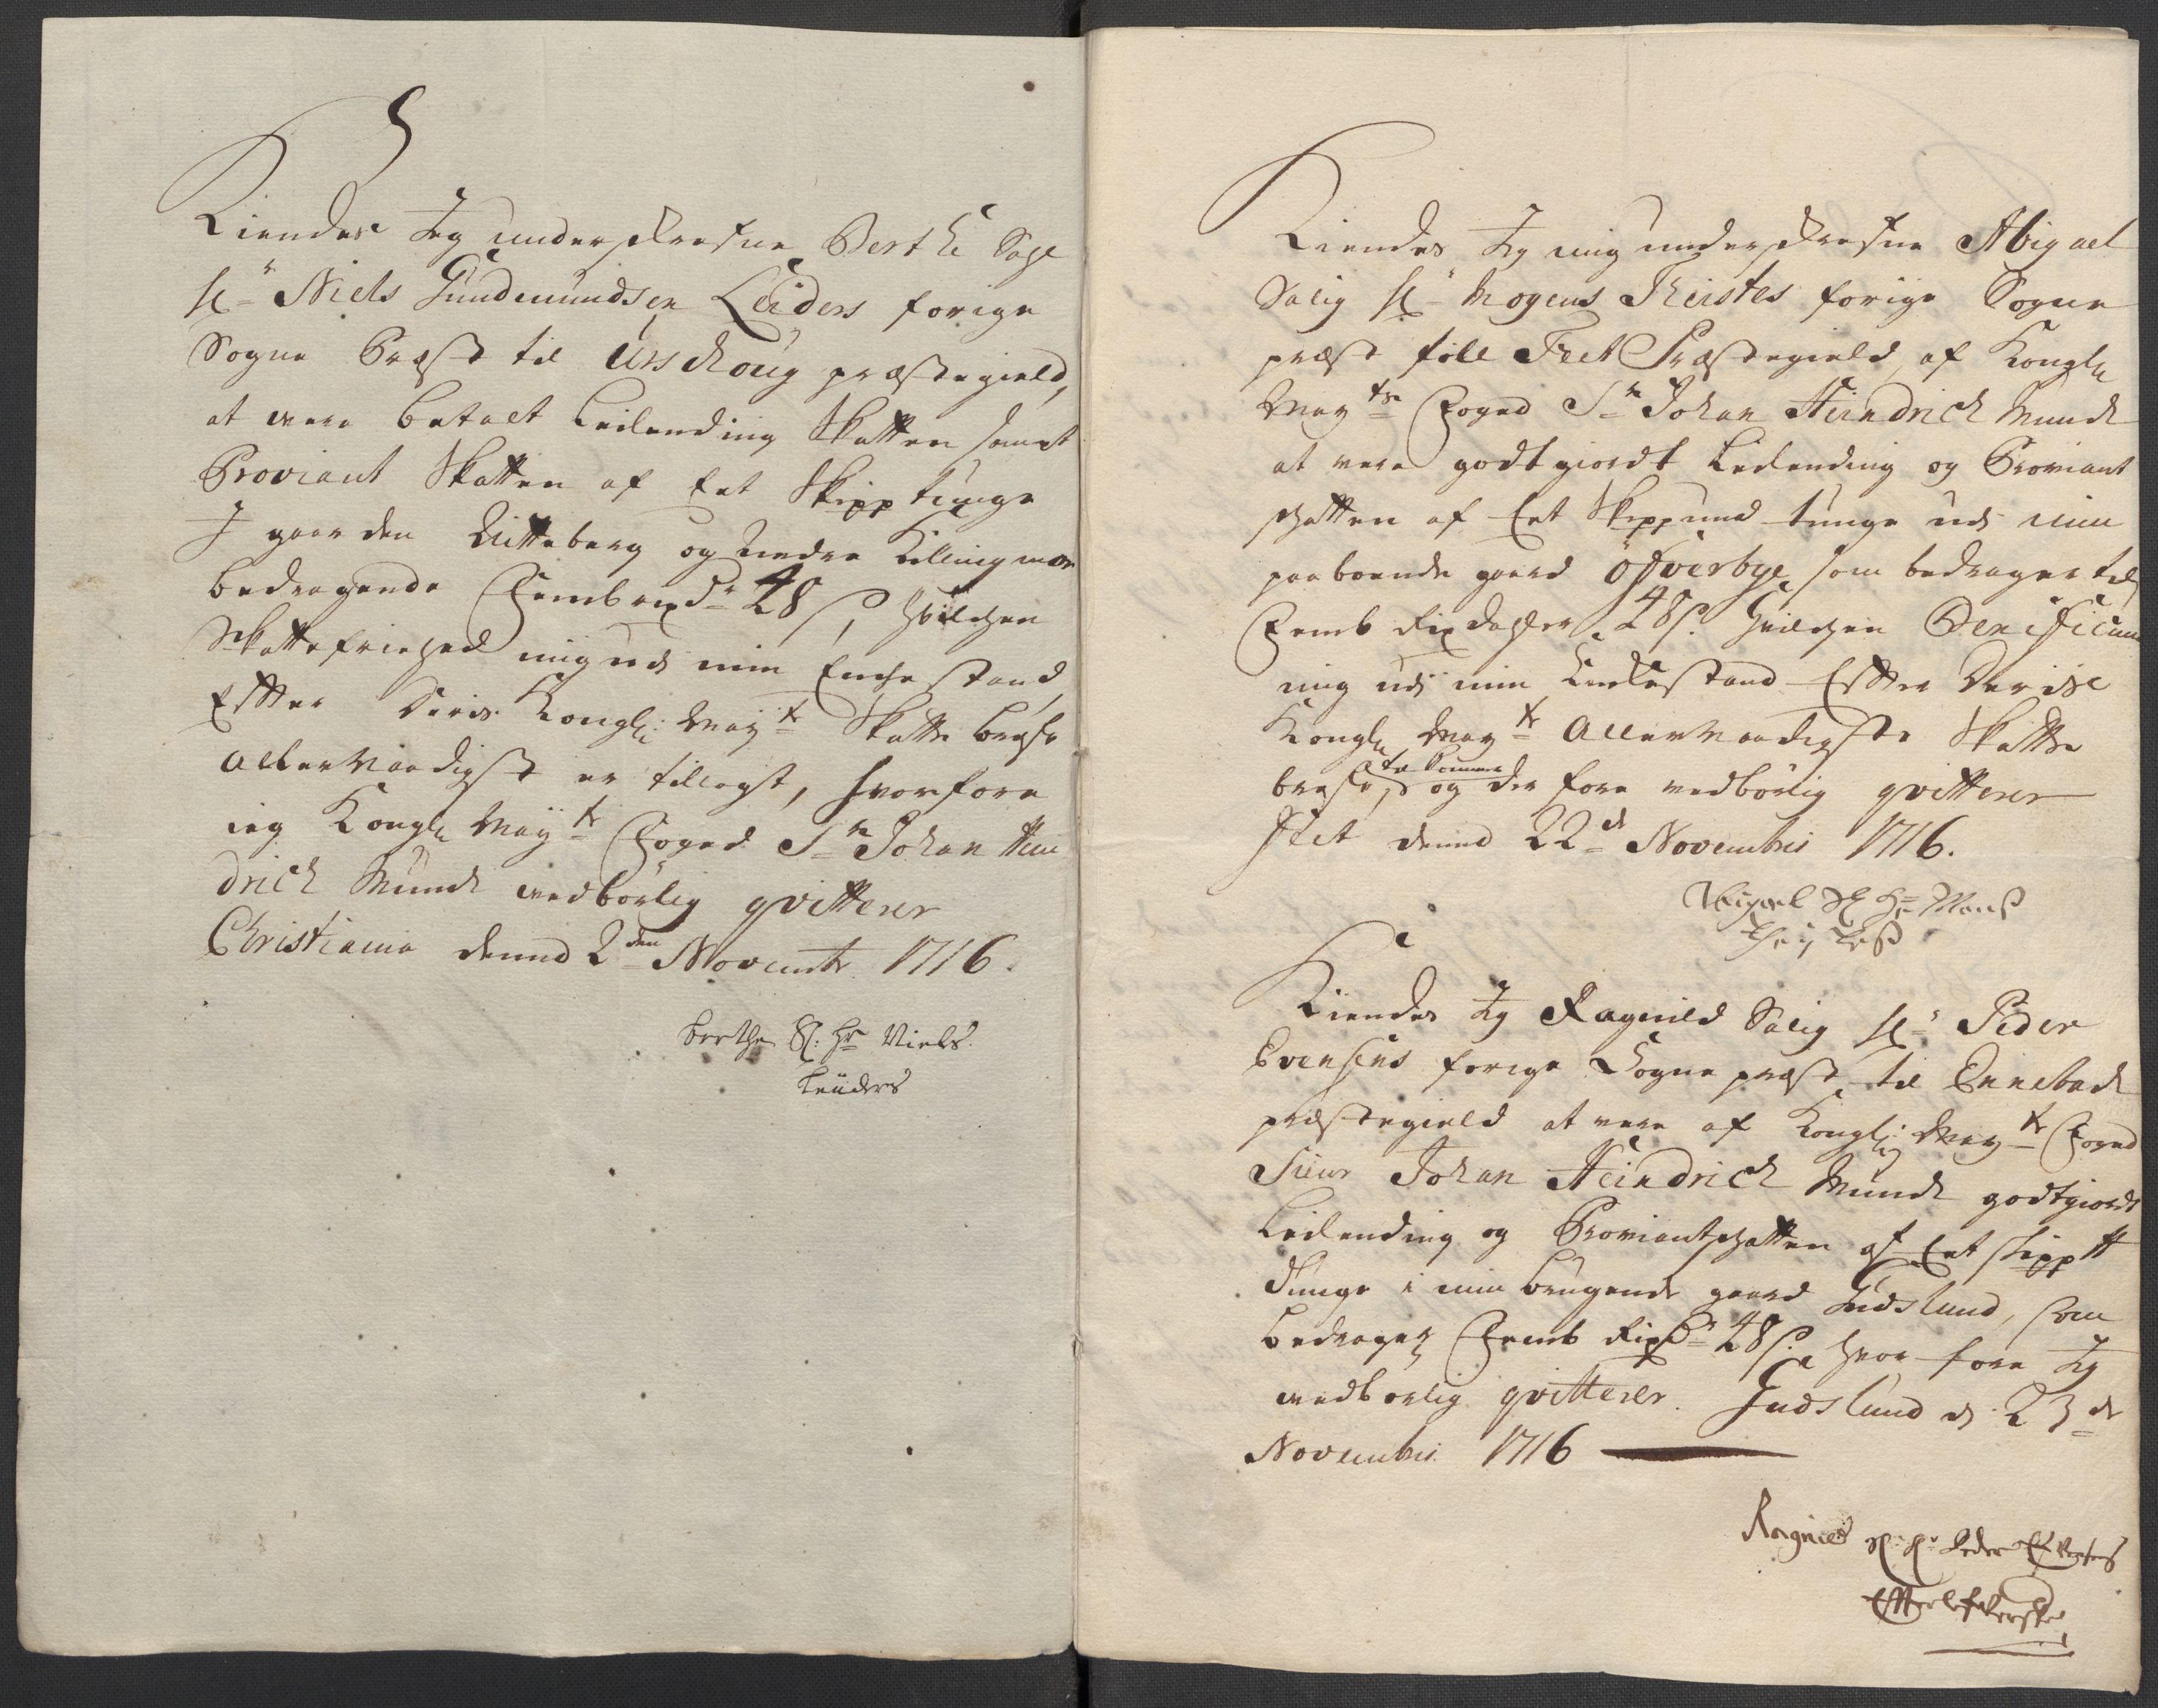 Kiendes Jeg underskrefne Berthe Sal:
Hr Niels Gundmundsen Leüders forige
Sogne Præst til Urschoug præstegield,
at være betalt Leilending Skatten samt
Proviant Skatten af Eet Skipp tunge
J gaarden Ditteberg og Nedre Killingmoe
bedragende Femb rixdr 48 s, hvilchen
Skattefriehed mig udj min Enche stand
Effter Deris Kongl: Mayts Skatte brefe
allernaadigst er tillagt, hvorfore
ieg Kongl: Mayts Foged Sr Johan Hein
drich Munch vedbörlig qvitterer
Christiania dennd 2den Novembr 1716.
Berthe Sl: Hr Niels
Leüders
Kiendes Jeg mig underskrefne Abigael
Salig Hr Mogens Theistes forige Sogne
præst till Feet Præstegield, af Kongl:
Mayts Foged Sr Johan Heindrich Munch
at være godtgiordt Leilending og Proviant
schatten af Eet Skippund tunge udj min
paaboende gaard Öfverbye, som bedrager til
Femb Rixdaller 48 s. hvilchen Beneficium
mig udj min Enchestand Effter Derise
Kongl: Mayts Allernaadigste Skatte
brefe, tilkommer og der fore vedbörlig qvitterer
Feet dennd 22de Novembris 1716.
Abigael Sl Hr Monß
Theisteß
Kiendes Jeg Ragnild Salig Hr Peder
Evensens forige Sogne præst til Ennebach
præstegield at være af Kongl: Mayts Foged
Siur Johan Heindrich Munch godtgiordt
Leilending og Proviantschatten af Eet skipp tt
Tunge i min brugende gaard Gudslund, som
bedrager Femb Rixdr 48 s. hvor fore Jeg
vedborlig qvitterer. Gudslund d 23de
Novembris 1716
Ragnild Sl: Hr Peder
Effterlefverske